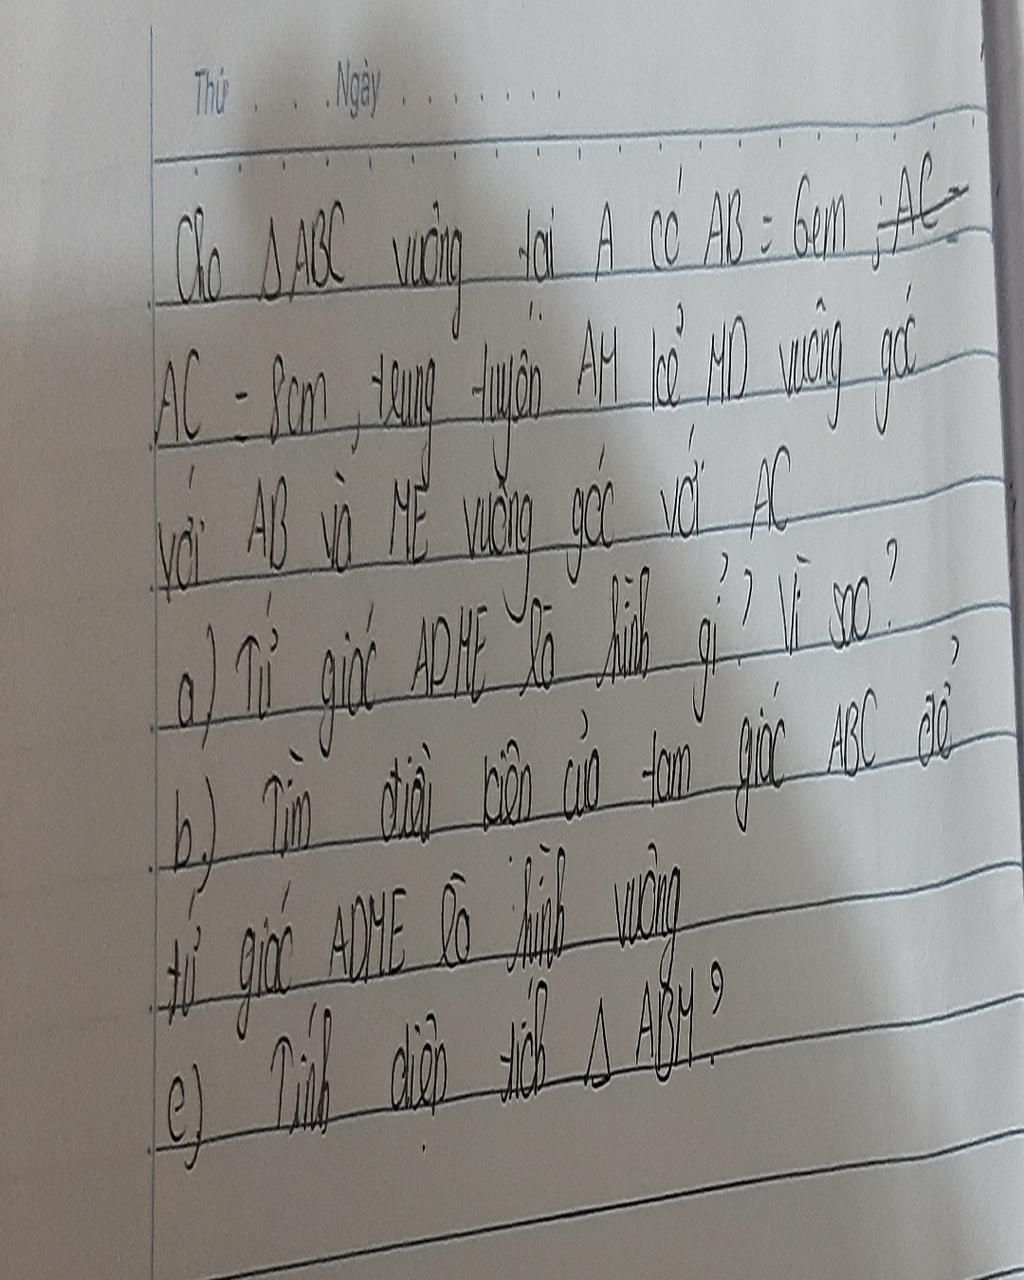 Thứ . . . . Ngày . . . . . . . .
Cho Δ ABC vuông tại A có AB = 6cm ; AC =
AC = 8cm , trung tuyến AM kẻ MD vuông góc
với AB và ME vuông góc với AC
a) Tứ giác ADME là hình gì ? Vì sao ?
b) Tìm điều kiện của tam giác ABC để
tứ giác ADME là hình vuông
c) Tính diện tích Δ ABM ?